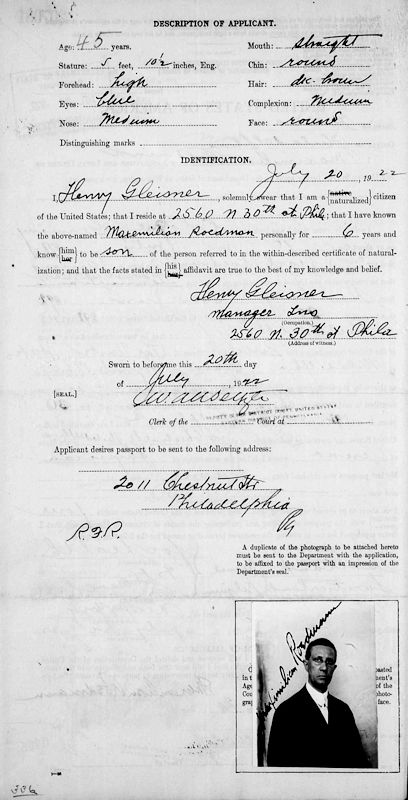 DESCRIPTION OF APPLICANT.
Age: 45 years. Mouth: straight
Stature: 5 feet, 10½ inches, Eng. Chin: round
Forehead: high Hair: dk. brown
Eyes: blue Complexion: Medium
Nose: Medium Face: round
Distinguishing marks
IDENTIFICATION.
July 20, 1922
I, Henry Gleisner, solemnly swear that I am a {native naturalized} citizen
of the United States; that I reside at 2560 N 30th st Phila; that I have known
the above-named Maximilian Roedman personally for 6 years and
know {him her} to be son of the person referred to in the within-described certificate of natural-
ization; and that the facts stated in {his her} affidavit are true to the best of my knowledge and belief.
Henry Gleisner
Manager Ins
(Occupation.)
2560 N. 30th st Phila
(Address of witness.)
Sworn to before me this 20th day
of July, 1922
[SEAL.]
DEPUTY CLERK DISTRICT COURT UNITED STATES
EASTERN DISTRICT OF PENNSYLVANIA
Clerk of the Court at
Applicant desires passport to be sent to the following address:
2011 Chestnut St
Philadelphia
Pa
R.F.R.
A duplicate of the photograph to be attached hereto
must be sent to the Department with the application,
to be affixed to the passport with an impression of the
Department's seal.
Maximilian Roedmann